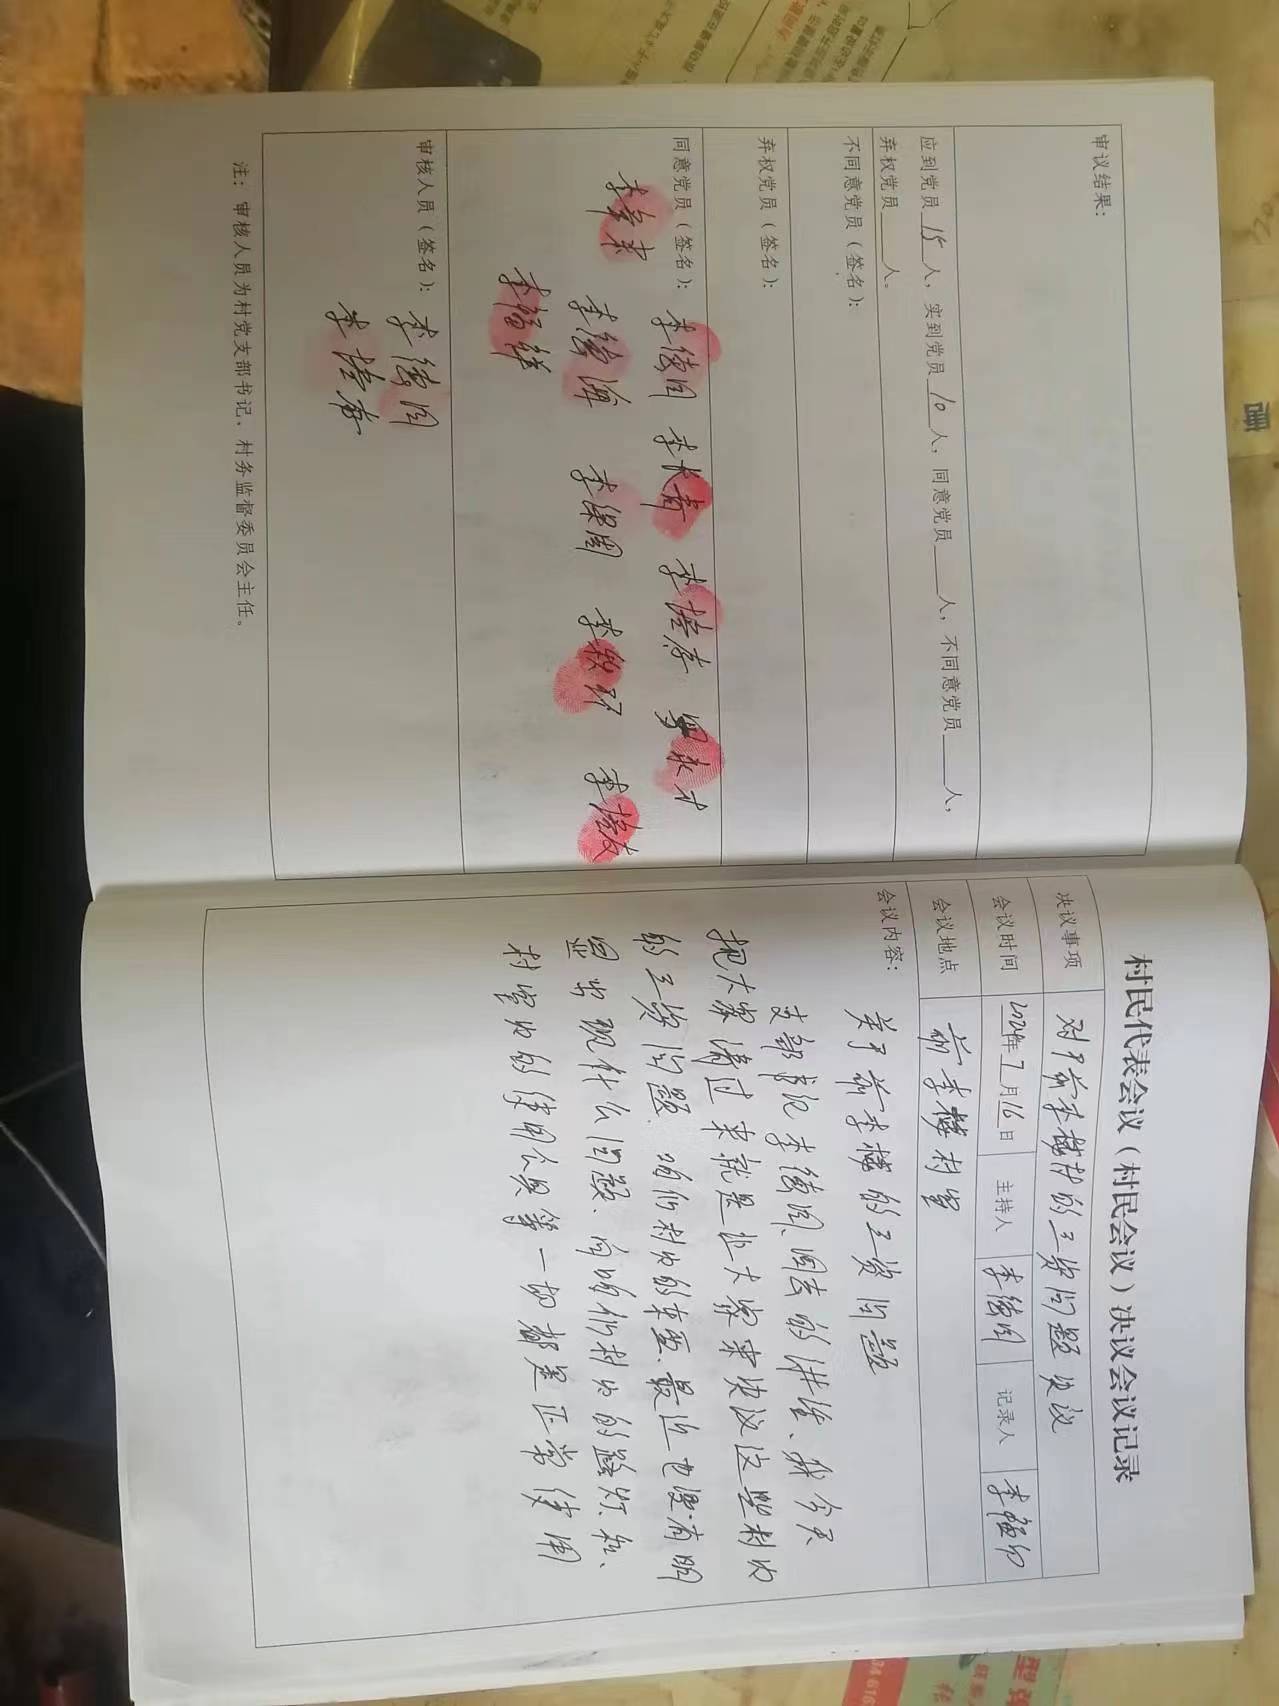 审议结果：
应到党员 15 人，实到党员 10 人，同意党员 人，不同意党员 人，
弃权党员 人。
不同意党员（签名）：
弃权党员（签名）：
同意党员（签名）：
李德周 李长青
李德海 李保周
审核人员（签名）：
李德周
注：审核人员为村党支部书记、村务监督委员会主任。
村民代表会议（村民会议）决议会议记录
决议事项 对于前李楼村的三资问题决议
会议时间 2024年7月16日 主持人 李德周 记录人
会议地点 前李楼村室
会议内容：
关于前李楼的三资问题
支部书记李德周同志的讲话、我今天
把大家请过来就是让大家来决议这些村内
的三资问题. 咱们村内的东西、最近也没有明
显出现什么问题、向咱们村内的路灯、
村室内的使用公具等一切都是正常使用